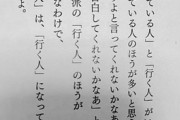 ている人」と「行く人」が
ている人のほうが多いと思
よと言ってくれないかなあ
白してくれないかなあ」と
派の「行く人」のほうが
なわけで、
」は、「行く人」になって
よ。